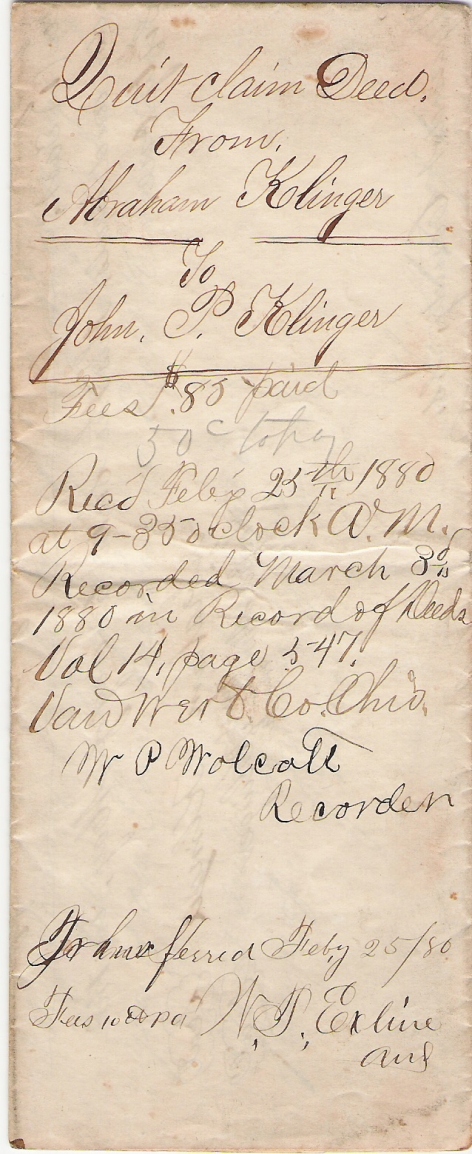 Quit claim Deed.
From.
Abraham Klinger
To
John. P. Klinger
Fees $.85 paid
50 c
Rec'd Feb'y 25th 1880
at 9-35 o clock A.M.
Recorded March 3d
1880 in Record of Deeds
Vol 14, page 547.
Van Wert Co. Ohio.
W P Wolcott
Recorder
Transferred Feby 25/80
Fees 10 W.T. Exline
Aud